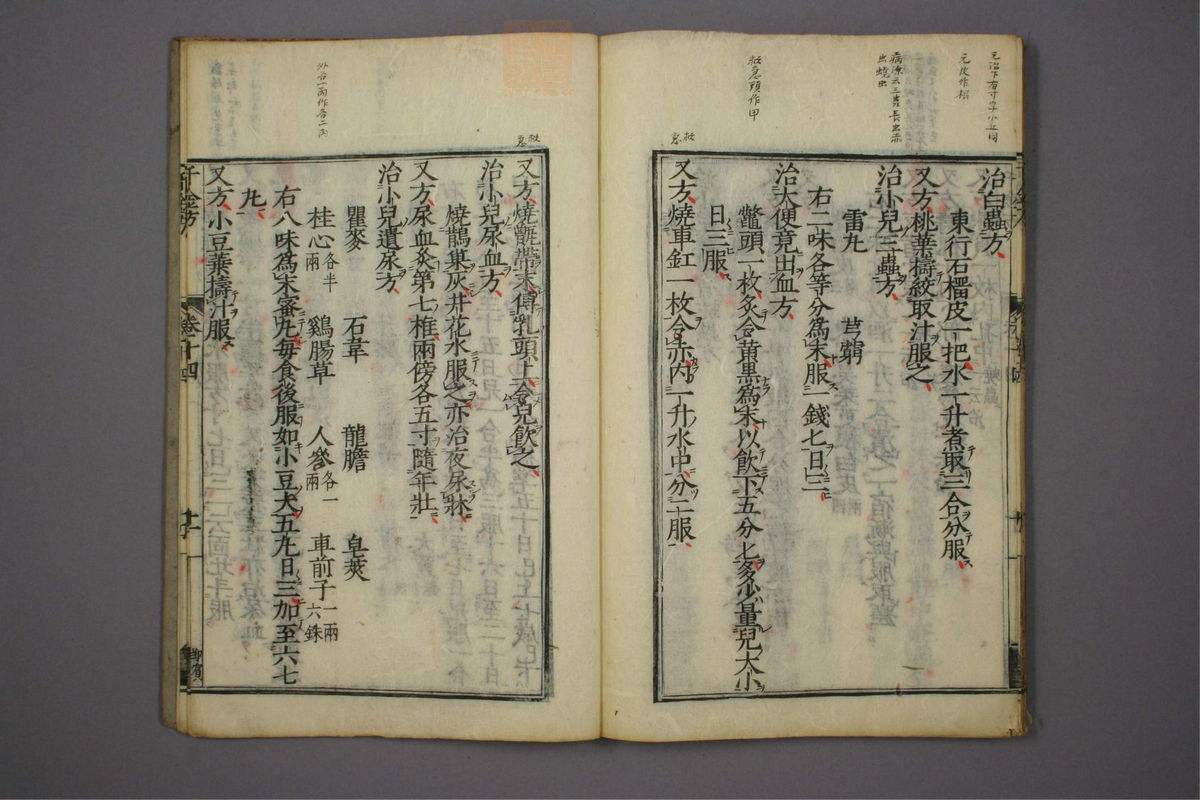 元皮作根
病源云三虫長虫赤
虫蟯虫
救急頭作甲
救急
治白蟲方
東行石榴皮一把水一升煮取三合分服
又方桃葉擣絞取汁服之
治小兒三蟲方
雷丸　芎藭
右二味各等分爲末服一錢匕日二
治大便竟出血方
鱉頭一枚炙令黃黑爲末以飲下五分匕多少量兒大小
日三服
又方燒車釭一枚令赤內一升水中分二服
救急
外台一兩作各二兩
又方燒甑帶末傅乳頭上令兒飲之
治小兒尿血方
燒鵲巢灰井花水服之亦治夜尿牀
又方尿血灸第七椎兩傍各五寸隨年壯
治小兒遺尿方
瞿麥　石韋　龍膽　皂莢
桂心各半兩　鷄腸草　人參各一兩　車前子一兩六銖
右八味爲末蜜丸每食後服如小豆大五丸日三加至六七
丸
又方小豆葉擣汁服
千金方　卷十四